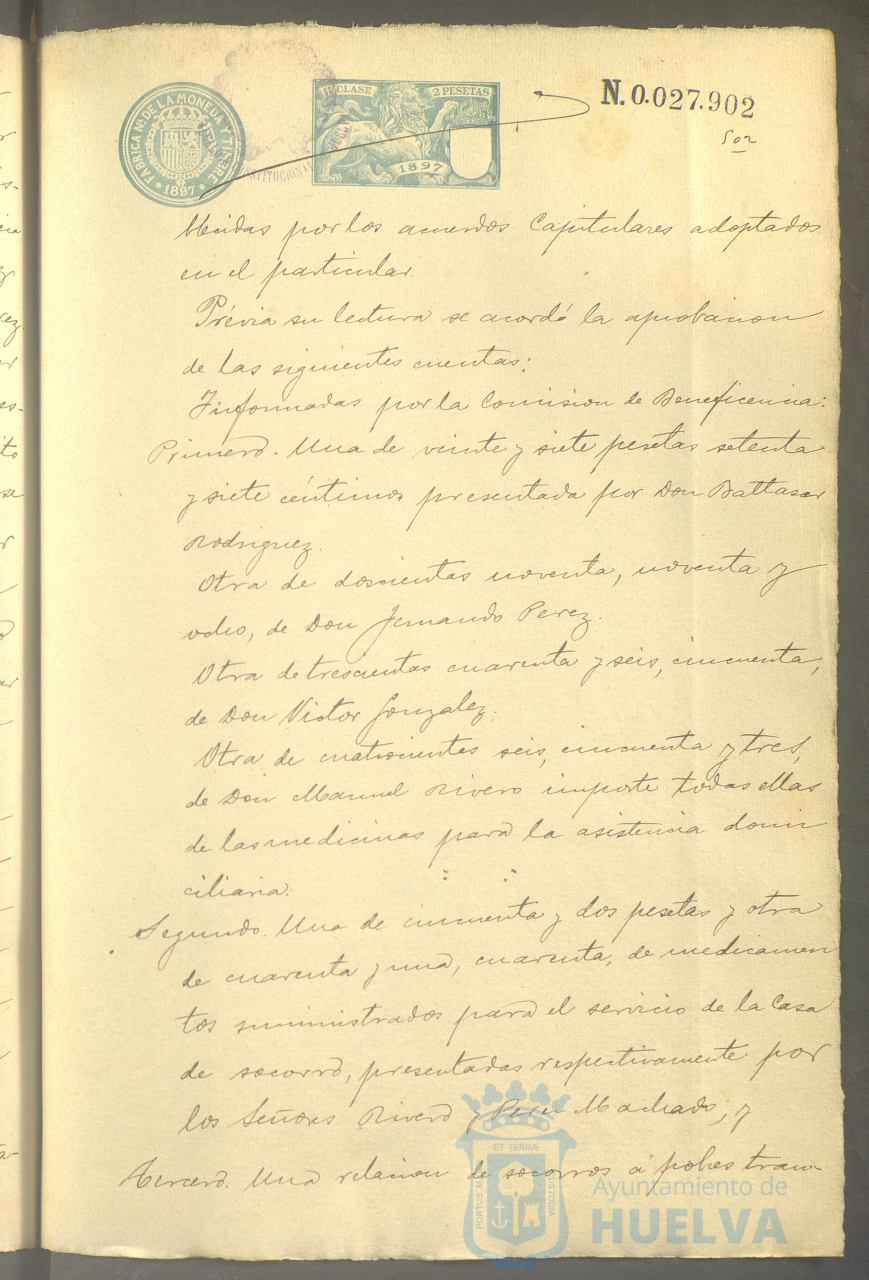 FABRICA NL. DE LA MONEDA Y TIMBRE
* 1897 *
11ª CLASE 2 PESETAS
1897
N.0.027.902
blecidas por los acuerdos Capitulares adoptados
en el particular.
Prévia su lectura se acordó la aprobacion
de las siguientes cuentas:
Informadas por la Comision de Beneficencia:
Primero. Una de veinte y siete pesetas setenta
y siete céntimos presentada por Don Baltasar
Rodriguez.
Otra de doscientas noventa, noventa y
ocho, de Don Fernando Perez.
Otra de trescientas cuarenta y seis, cincuenta,
de Don Victor Gonzalez.
Otra de cuatrocientas seis, cincuenta y tres,
de Don Manuel Rivero importe todas ellas
de las medicinas para la asistencia domi
ciliaria.
Segundo. Una de cincuenta y dos pesetas y otra
de cuarenta y una, cuarenta, de medicamen
tos suministrados para el servicio de la Casa
de socorro, presentadas respectivamente por
los Señores Rivero y Perez Machado; y
Tercero. Una relacion de socorros á pobres tran-
PORTUS MARIS ET TERRÆ CUSTODIA
Ayuntamiento de
HUELVA